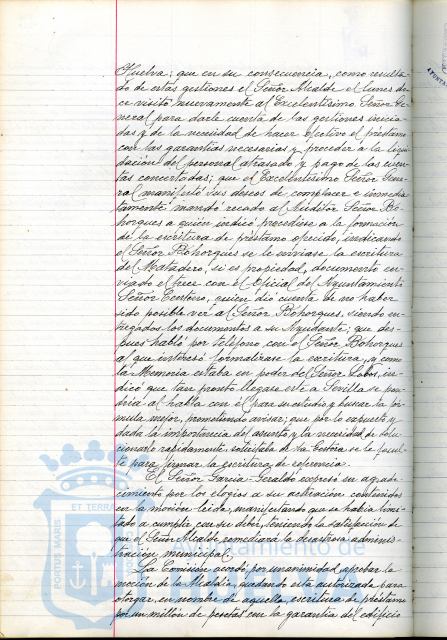 Huelva; que en su consecuencia, como resulta-
do de estas gestiones el Señor Alcalde el lunes do-
ce visitó nuevamente al Excelentísimo Señor Ge-
neral para darle cuenta de las gestiones inicia-
das y de la necesidad de hacer efectivo el préstamo
con las garantías necesarias y proceder a la liqui-
dación del personal atrasado y pago de las cuen-
tas concertadas; que el Excelentísimo Señor Gene-
ral manifestó sus deseos de complacer e inmedia-
tamente mandó recado al Auditor Señor Bo-
horques a quién indicó procediese a la formación
de la escritura de préstamo ofrecido, indicando
el Señor Bohorques se le enviase la escritura
del Matadero, si es propiedad, documento en-
viado el trece con el Oficial del Ayuntamiento
Señor Centeno, quien dió cuenta de no haber
sido posible ver al Señor Bohorques, siendo en-
tregados los documentos a su Ayudante; que des-
pues habló por teléfono con el Señor Bohorques
al que interesó formalizase la escritura, y como
la Memoria estaba en poder del Señor Lobo, in-
dicó que tan pronto llegase este a Sevilla se pon-
dría al habla con él para su estudio y buscar la fór-
mula mejor, prometiendo avisar; que por lo expuesto y
dada la importancia del asunto y la necesidad de solu-
cionarlo rapidamente solicitaba de la Gestora se le facul-
te para firmar la escritura de referencia.
El Señor García Geraldo expresó su agrade-
cimiento por los elogios a su actuación contenidos
en la moción leida, manifestando que se había limi-
tado a cumplir con su deber, teniendo la satisfacción de
que el Señor Alcalde remediará la desastrosa adminis-
tración municipal.
La Comisión acordó por unanimidad aprobar la
moción de la Alcaldía, quedando esta autorizada para
otorgar, en nombre de aquella, escritura de préstamo
por un millón de pesetas con la garantía del edificio
PORTUS MARIS
ET TERRA